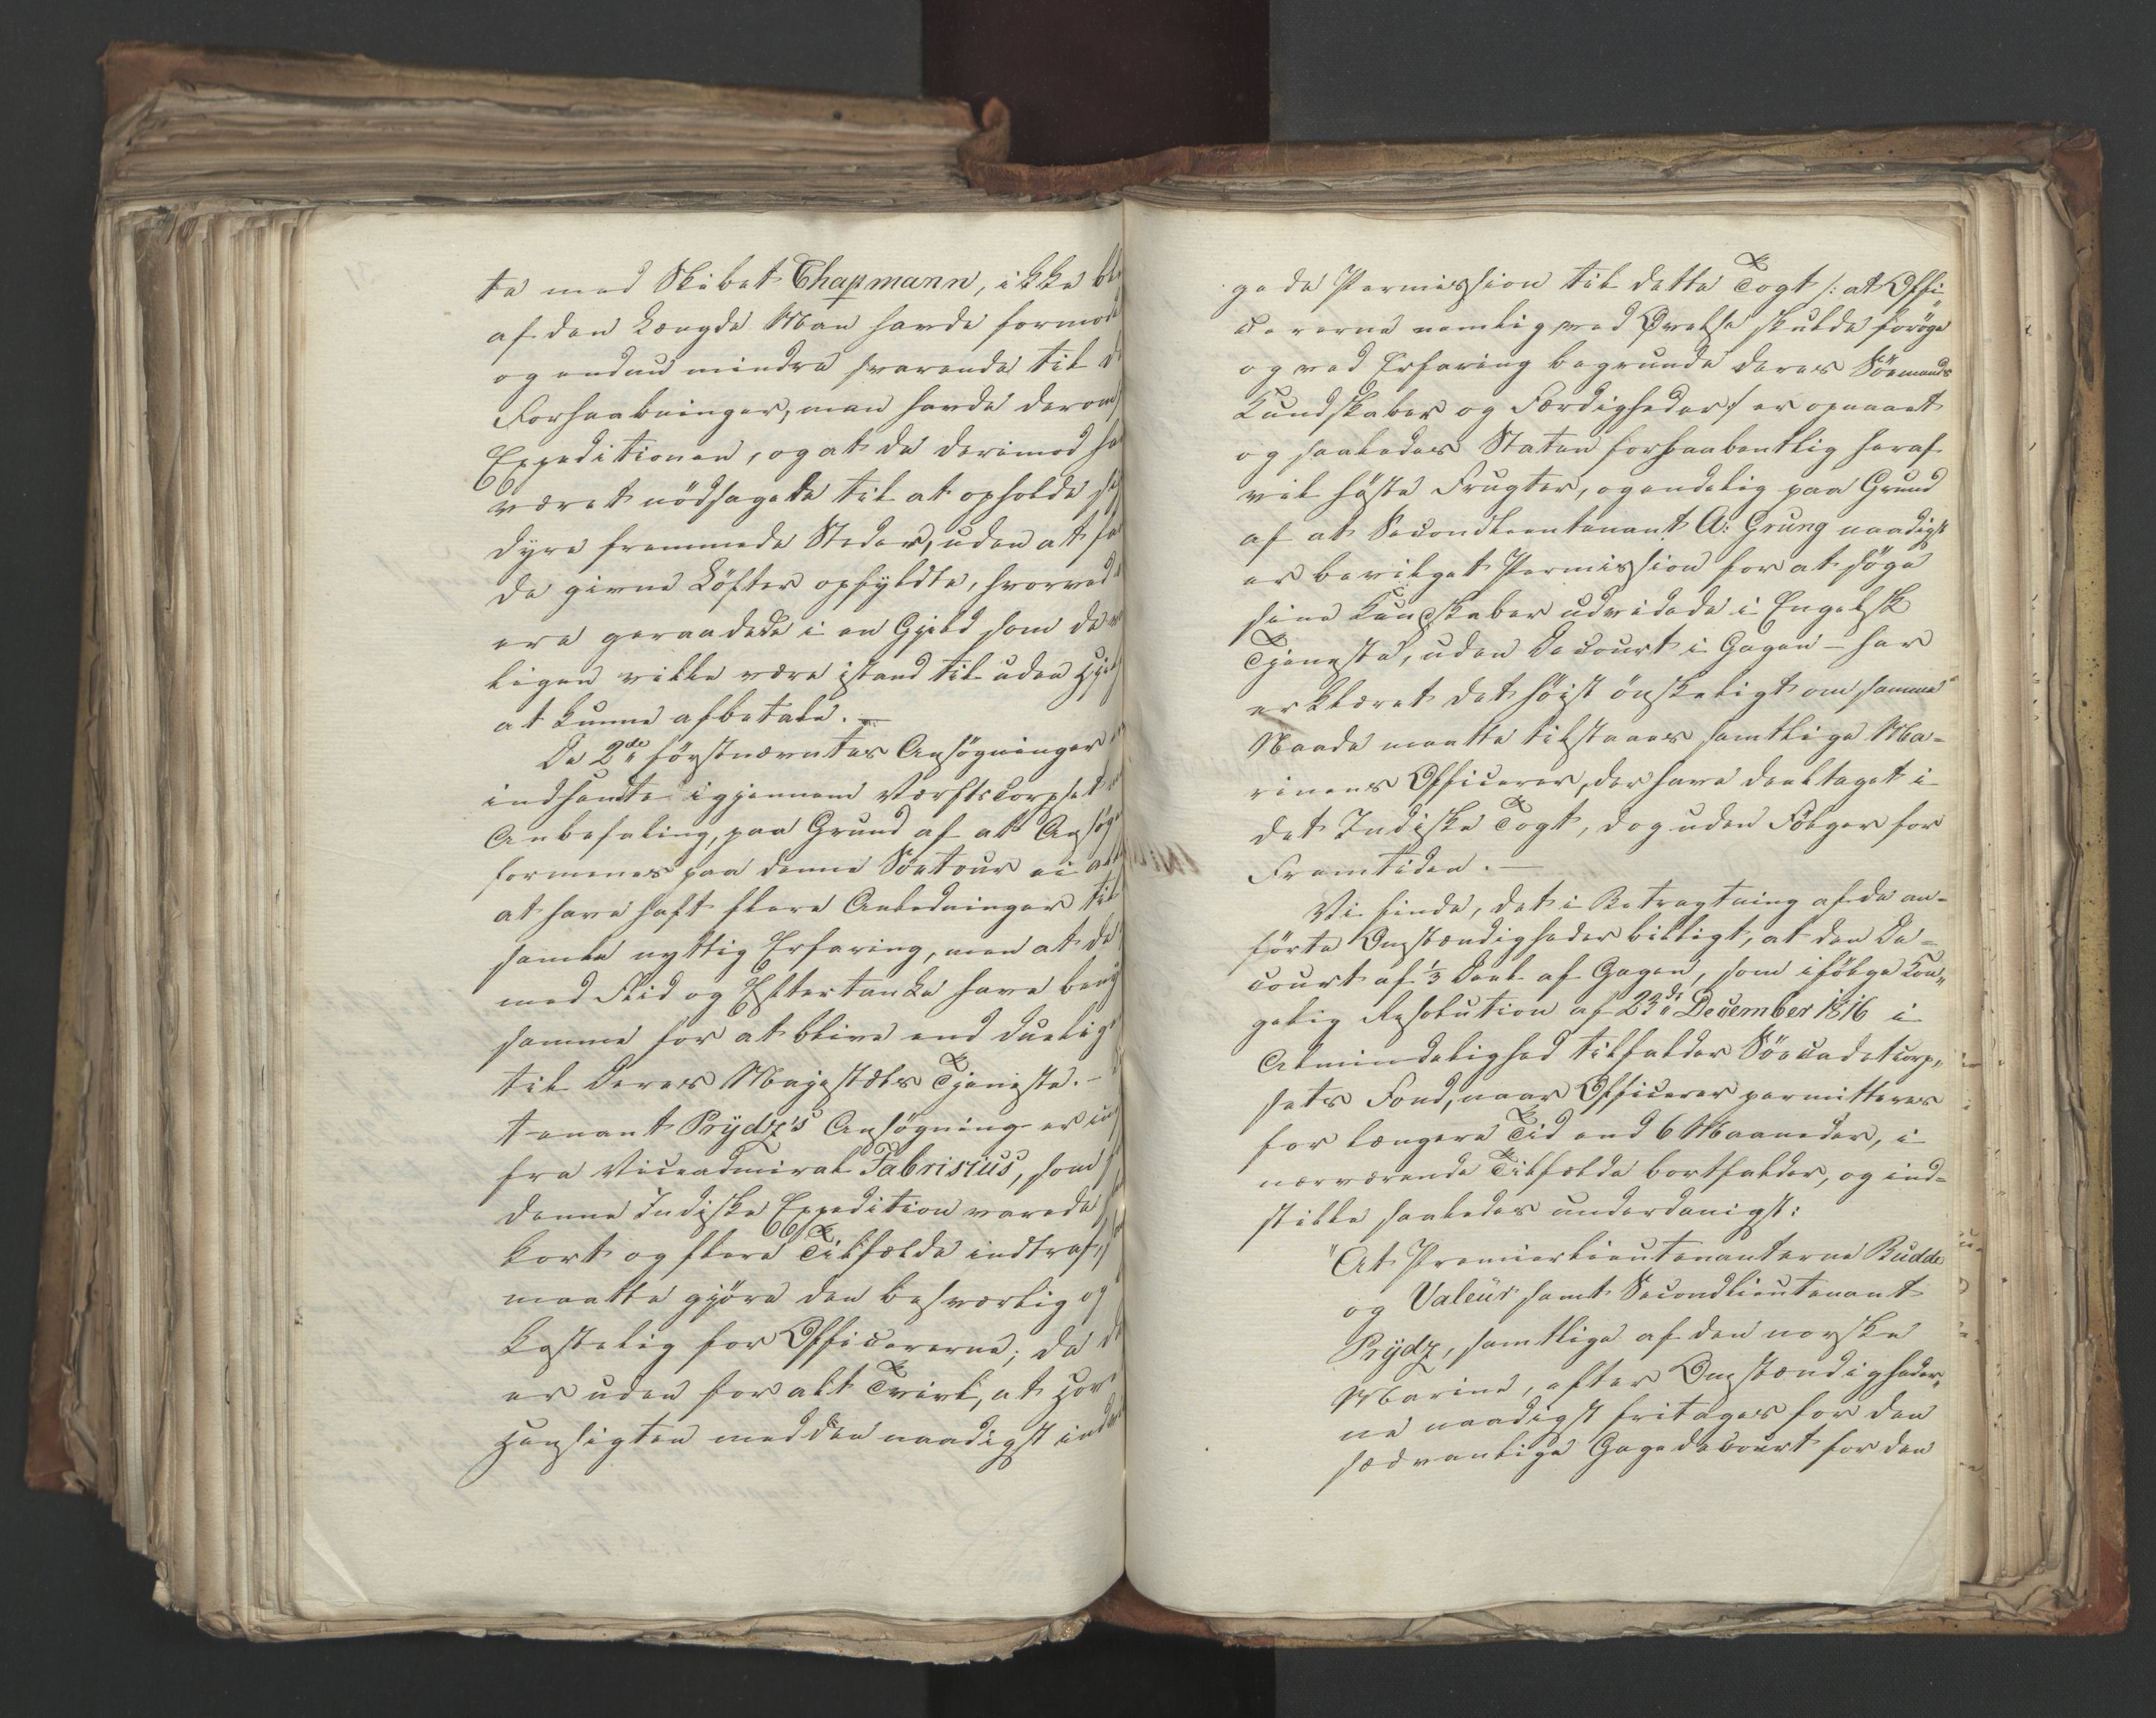 te med Skibet Chapmann, ikke
af den Længde Man havde
og endnu mindre svarende til
Forhaabninger, man havde
Expeditionen, og at de derimod
været nödsagede til at opholde
dyre fremmede Steder, uden at
de givne Löfter opfyldte, hvorved
ere geraadede i en Gjeld som de
ligen ville være istand til uden
at kunne afbetale. –
De 2de förstnævntes Ansögninger
indsendte igjennem Værfts Corpset
Anbefaling, paa Grund af at
formenes paa denne Söetour ei
at have haft flere Anledninger til
samle nyttig Erfaring, men at de
med Flid og Eftertanke have
samme for at blive end duelige
til Deres Majestæts Tjeneste. –
tenant Prydz's Ansögning er
fra Viceadmiral Fabrisius, som
denne Indiske Expedition varede
kort og flere Tilfælde indtraf,
maatte gjöre den besværlig og
kostelig for Officererne; da
er uden for alt Tvivl, at
Hensigten med den naadigst
gede Permission til dette Togt /: at Offi
cererne nemlig ved Övelse skulde foröge
og ved Erfaring begrunde deres Söemands
Kundskaber og Færdigheder :/ er opnaaet
og saaledes Staten forhaabentlig heraf
vil höste Frugter, og endelig paa Grund
af at Secondlieutenant A: Grung naadigst
er bevilget Permission for at söge
sine Kundskaber udvidede i Engelsk
Tjeneste, uden Decourt i Gagen – har
erklæret det höist önskeligt om samme
Naade maatte tilstaaes samtlige Ma=
rinens Officerer, der have deeltaget i
det Indiske Togt, dog uden Fölger for
Fremtiden. –
Vi finde, det i Betragtning af de an=
förte Omstændigheder billigt, at den De=
court af 1/3 Deel af Gagen, som ifölge Kon„
gelig Resolution af 23de December 1816 i
Almindelighed tilfalder Söecadetcorp„
sets Fond, naar Officerer permitteres
for længere Tid end 6 Maaneder, i
nærværende Tilfælde bortfalder, og ind=
stille saaledes underdanigst:
"At Premierlieutenanterne Budde
og Valeur samt Secondlieutenant
Prydz, samtlige af den norske
Marine, efter Omstændigheder„
ne naadigst fritages for den
sædvanlige Gagedecourt for den